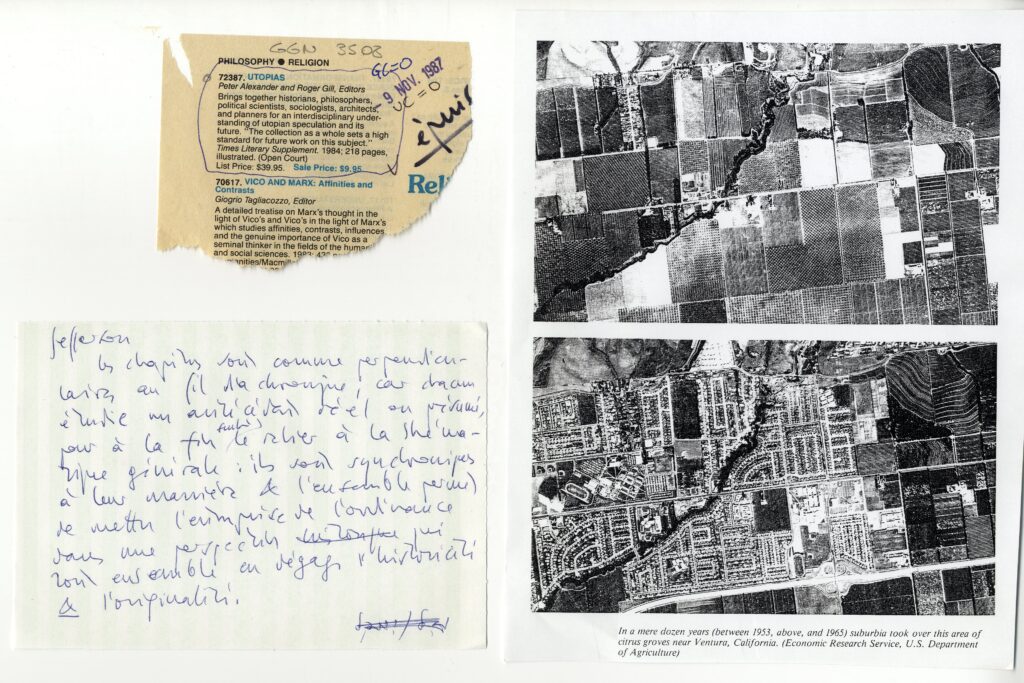 GGN 3503
PHILOSOPHY ● RELIGION
72387. UTOPIAS
Peter Alexander and Roger Gill, Editors
Brings together historians, philosophers,
political scientists, sociologists, architects,
and planners for an interdisciplinary under-
standing of utopian speculation and its
future. "The collection as a whole sets a high
standard for future work on this subject."
Times Literary Supplement. 1984; 218 pages,
illustrated. (Open Court)
List Price: $39.95. Sale Price: $9.95
GG=0
- 9 NOV. 1987
UC = 0
épuisé
Rel
70617. VICO AND MARX: Affinities and
Contrasts
Giogrio Tagliacozzo, Editor
A detailed treatise on Marx's thought in the
light of Vico's and Vico's in the light of Marx's
which studies affinities, contrasts, influences
and the genuine importance of Vico as a
seminal thinker in the fields of the
and social sciences.
Jefferson
les chapitres sont comme perpendicu-
laires au fil diachronique, car chacun
étudie un antécédent réel ou présumé,
pour à la fin le relier à la théma-
tique générale : ils sont synchroniques
à leur manière & l'ensemble permet
de mettre l'entreprise de l'ordinance
dans une perspective qui
tout ensemble en dégage l'historicité
& l'originalité.
In a mere dozen years (between 1953, above, and 1965) suburbia took over this area of
citrus groves near Ventura, California. (Economic Research Service, U.S. Department
of Agriculture)